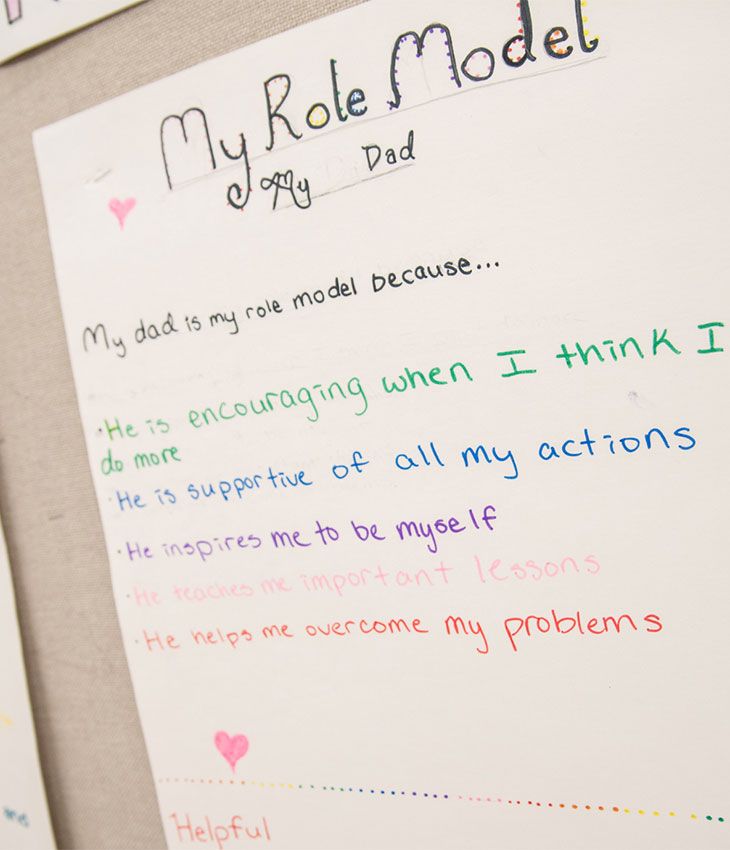 My Role Model
My Dad
My dad is my role model because...
·He is encouraging when I think I
do more
·He is supportive of all my actions
·He inspires me to be myself
·He teaches me important lessons
·He helps me overcome my problems
Helpful